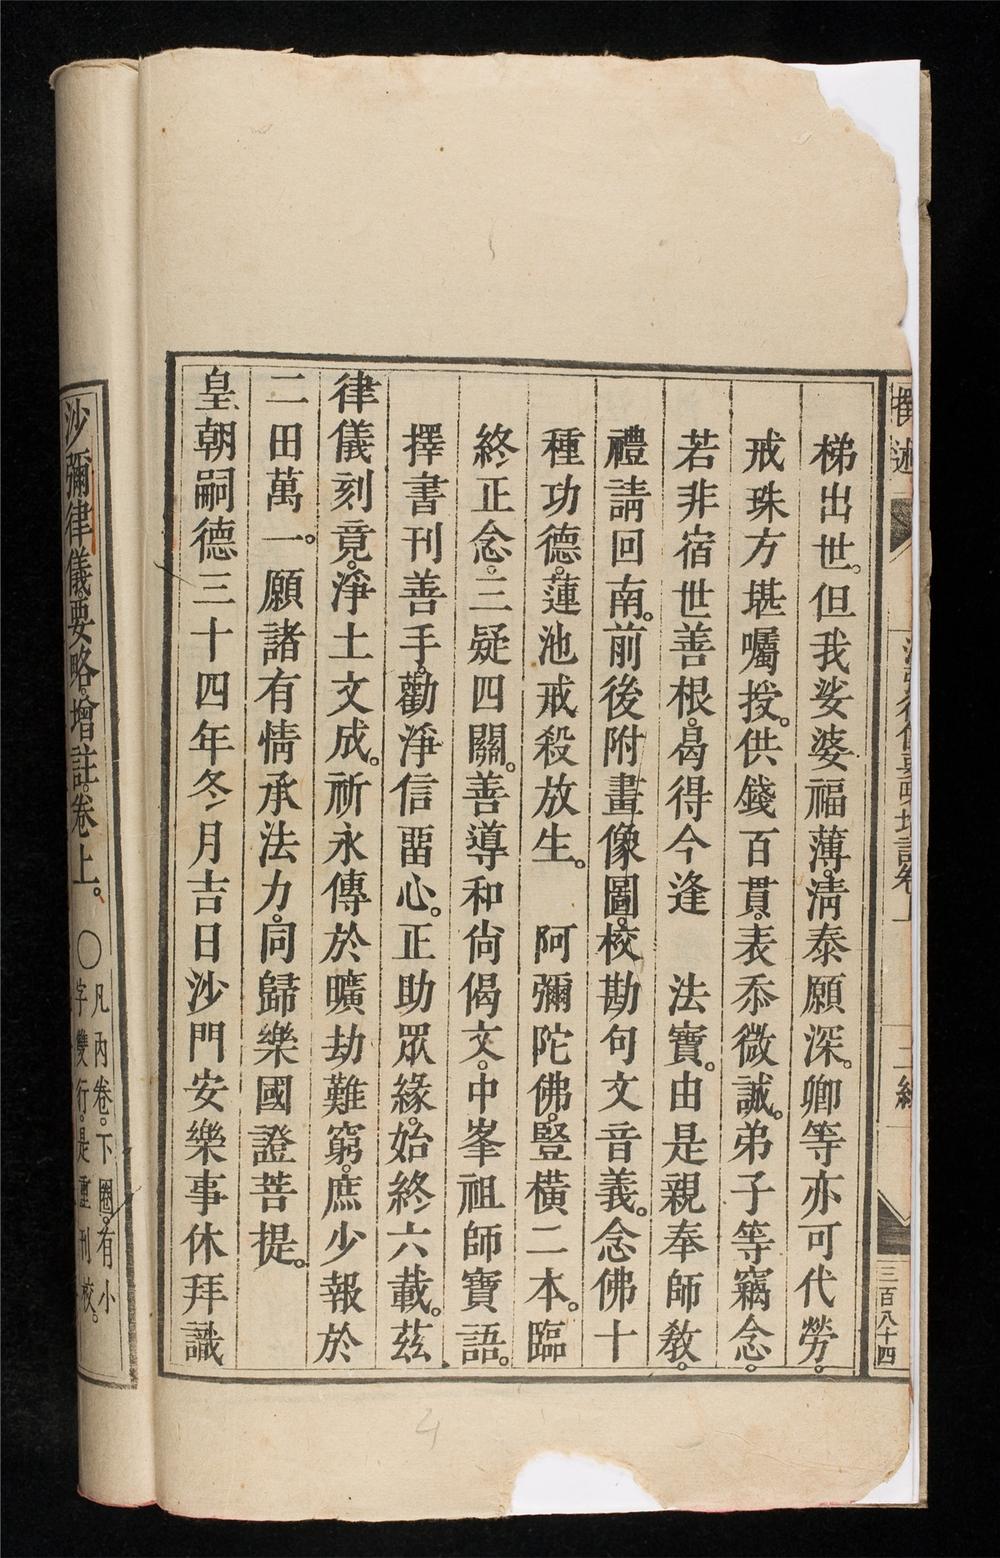 撰述
三百八十四
梯出世。但我娑婆福薄。淸泰願深。卿等亦可代勞。
戒珠方堪囑授。供錢百貫。表忝微誠。弟子等竊念。
若非宿世善根。曷得今逢　法寶。由是親奉師敎。
禮請回南。前後附畫像圖。校勘句文音義。念佛十
種功德。蓮池戒殺放生。　阿彌陀佛。豎橫二本。臨
終正念。三疑四關。善導和尙偈文。中峯祖師寶語。
擇書刊善手。勸淨信畱心。正助眾緣。始終六載。茲
律儀刻竟。淨土文成。祈永傳於曠劫難窮。庶少報於
二田萬一。願諸有情承法力。同歸樂國證菩提。
皇朝嗣德三十四年冬月吉日沙門安樂事休拜識
沙彌律儀要略增註卷上。
〇凡內卷。下圈。有小
字雙行。是重刊校。